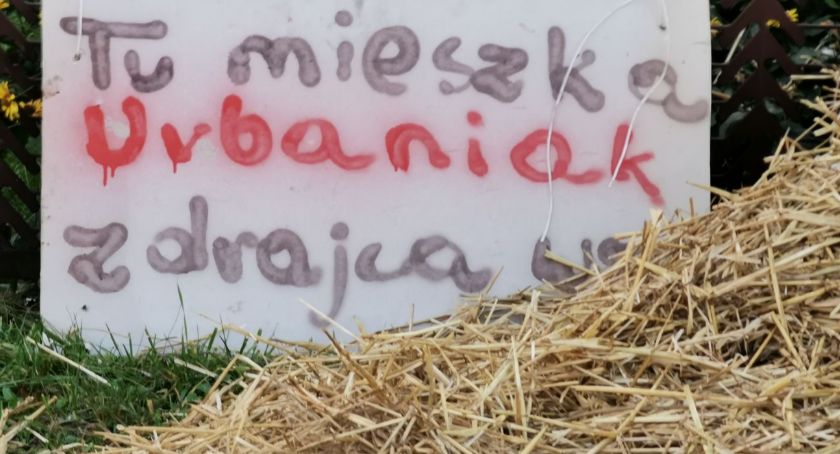 Tu mieszka
Urbaniak
zdrajca